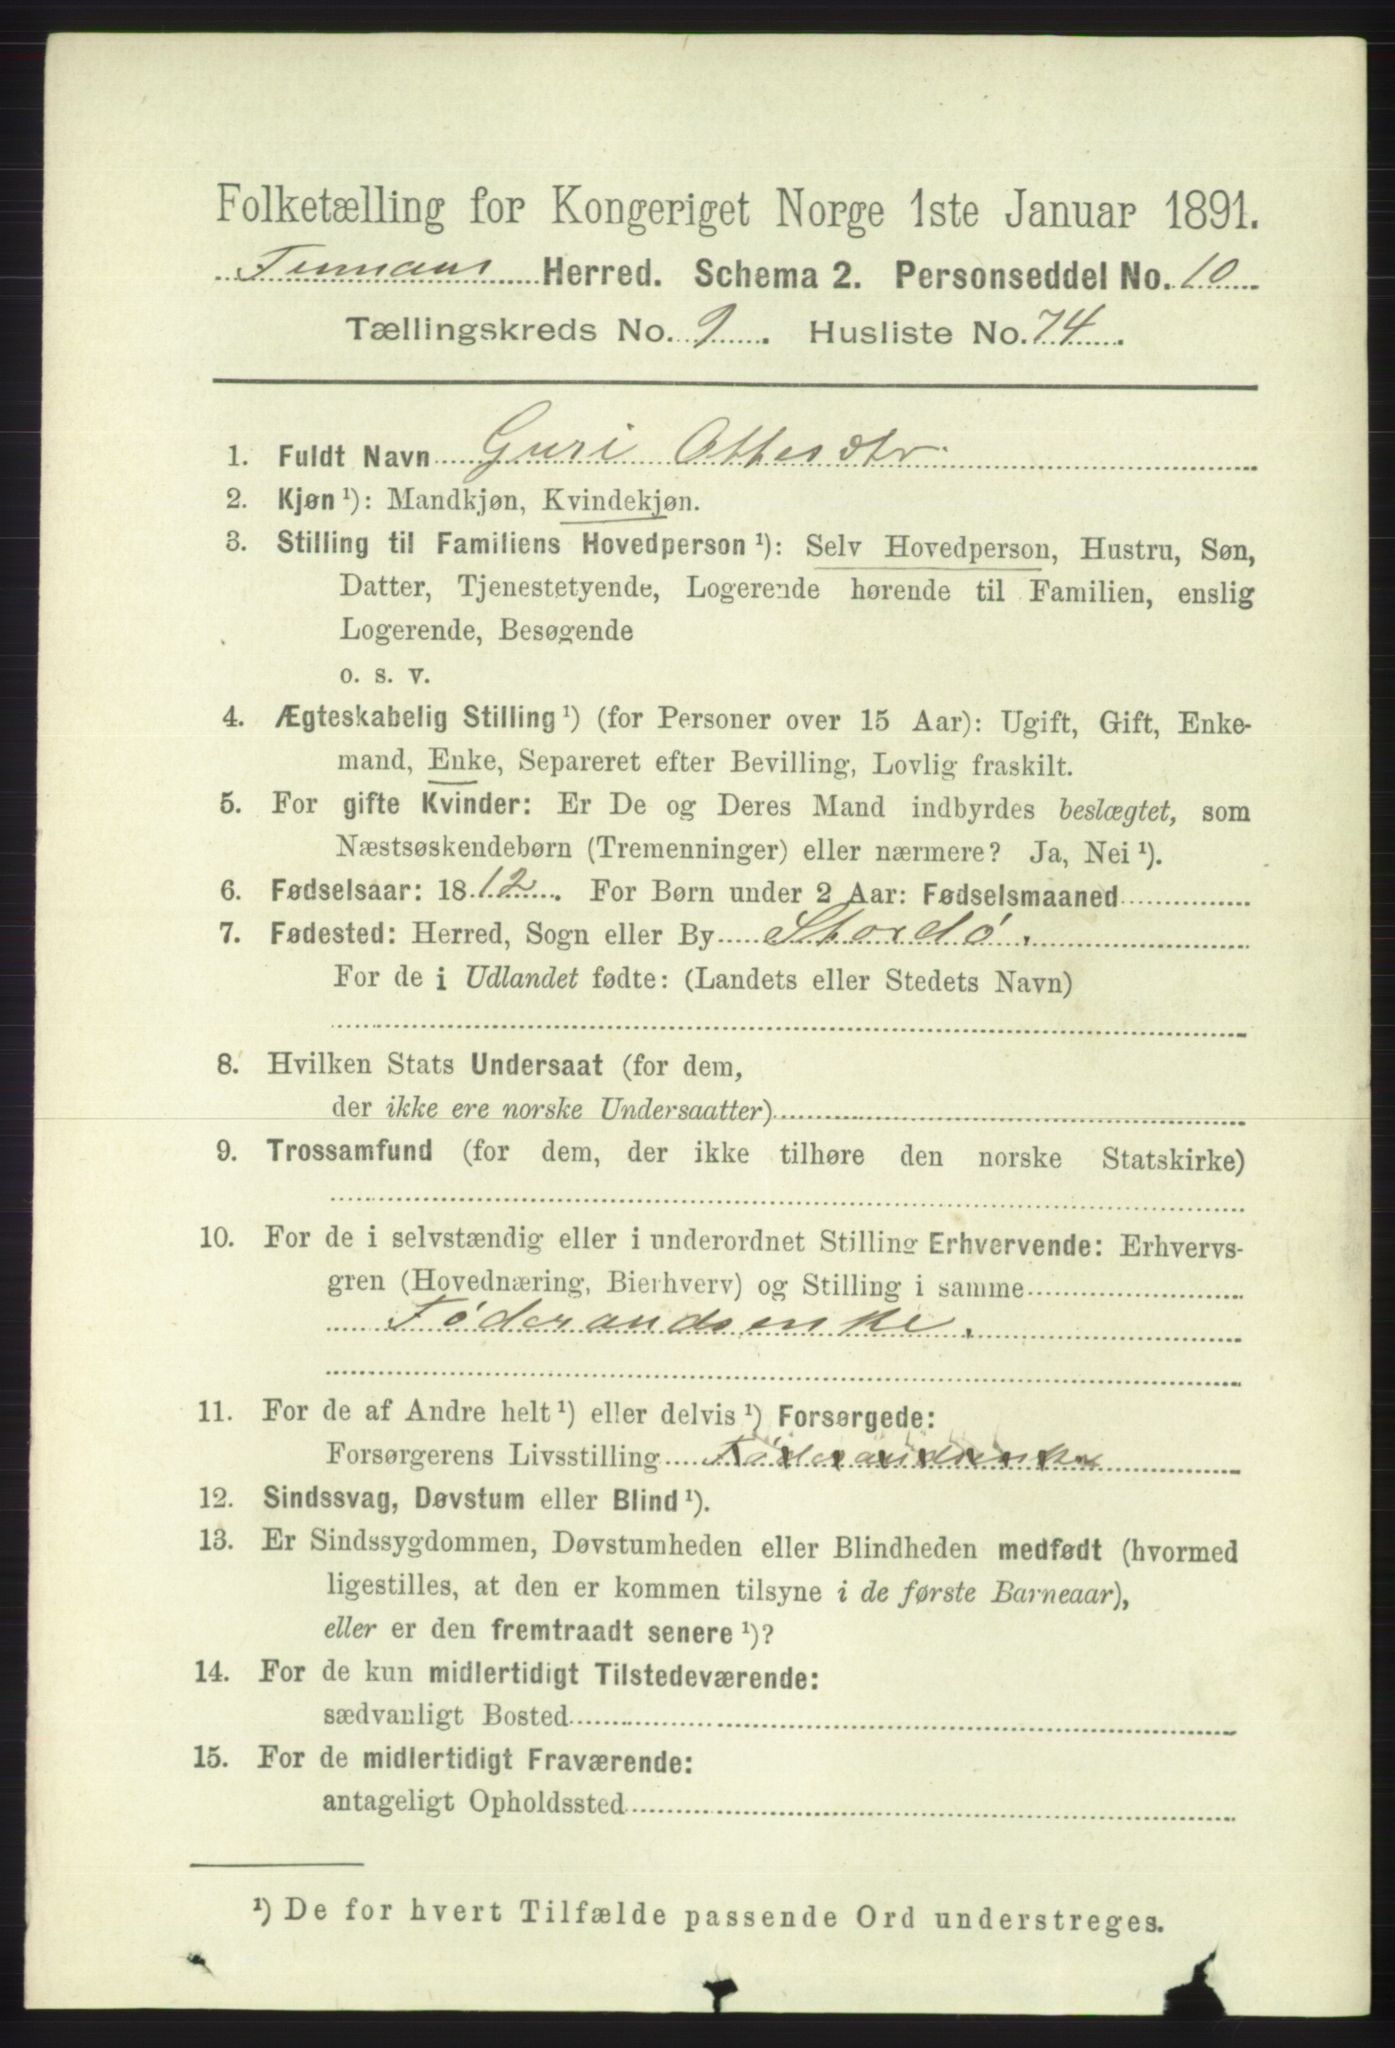 Folketælling for Kongeriget Norge 1ste Januar 1891.
Finnaas Herred. Schema 2. Personseddel No. 10
Tællingskreds No. 9. Husliste No. 74.
1. Fuldt Navn Guri Ottesdtr
2. Kjøn ¹): Mandkjøn, Kvindekjøn.
3. Stilling til Familiens Hovedperson ¹): Selv Hovedperson, Hustru, Søn,
Datter, Tjenestetyende, Logerende hørende til Familien, enslig
Logerende, Besøgende
o. s. v.
4. Ægteskabelig Stilling ¹) (for Personer over 15 Aar): Ugift, Gift, Enke-
mand, Enke, Separeret efter Bevilling, Lovlig fraskilt.
5. For gifte Kvinder: Er De og Deres Mand indbyrdes beslægtet, som
Næstsøskendebørn (Tremenninger) eller nærmere? Ja, Nei ¹).
6. Fødselsaar: 1812. For Børn under 2 Aar: Fødselsmaaned
7. Fødested: Herred, Sogn eller By Stordø.
For de i Udlandet fødte: (Landets eller Stedets Navn)
8. Hvilken Stats Undersaat (for dem,
der ikke ere norske Undersaatter)
9. Trossamfund (for dem, der ikke tilhøre den norske Statskirke)
10. For de i selvstændig eller i underordnet Stilling Erhvervende: Erhvervs-
gren (Hovednæring, Bierhverv) og Stilling i samme
Føderaadsenke.
11. For de af Andre helt ¹) eller delvis ¹) Forsørgede:
Forsørgerens Livsstilling Føderaadsenke
12. Sindssvag, Døvstum eller Blind ¹).
13. Er Sindssygdommen, Døvstumheden eller Blindheden medfødt (hvormed
ligestilles, at den er kommen tilsyne i de første Barneaar),
eller er den fremtraadt senere ¹)?
14. For de kun midlertidigt Tilstedeværende:
sædvanligt Bosted
15. For de midlertidigt Fraværende:
antageligt Opholdssted
¹) De for hvert Tilfælde passende Ord understreges.